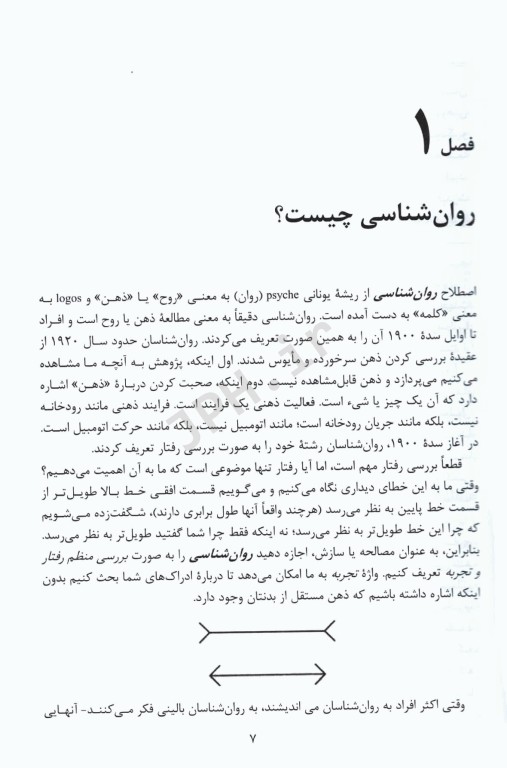 فصل ۱
روان‌شناسی چیست؟
اصطلاح روان‌شناسی از ریشهٔ یونانی psyche (روان) به معنی «روح» یا «ذهن» و logos به
معنی «کلمه» به دست آمده است. روان‌شناسی دقیقاً به معنی مطالعهٔ ذهن یا روح است و افراد
تا اوایل سدهٔ ۱۹۰۰ آن را به همین صورت تعریف می‌کردند. روان‌شناسان حدود سال ۱۹۲۰ از
عقیدهٔ بررسی کردن ذهن سرخورده و مایوس شدند. اول اینکه، پژوهش به آنچه ما مشاهده
می‌کنیم می‌پردازد و ذهن قابل‌مشاهده نیست. دوم اینکه، صحبت کردن دربارهٔ «ذهن» اشاره
دارد که آن یک چیز یا شیء است. فعالیت ذهنی یک فرایند است. فرایند ذهنی مانند رودخانه
نیست، بلکه مانند جریان رودخانه است؛ مانند اتومبیل نیست، بلکه مانند حرکت اتومبیل است.
در آغاز سدهٔ ۱۹۰۰، روان‌شناسان رشتهٔ خود را به صورت بررسی رفتار تعریف کردند.
قطعاً بررسی رفتار مهم است، اما آیا رفتار تنها موضوعی است که ما به آن اهمیت می‌دهیم؟
وقتی ما به این خطای دیداری نگاه می‌کنیم و می‌گوییم قسمت افقی خط بالا طویل‌تر از
قسمت خط پایین به نظر می‌رسد (هرچند واقعاً آنها طول برابری دارند)، شگفت‌زده می‌شویم
که چرا این خط طویل‌تر به نظر می‌رسد؛ نه اینکه فقط چرا شما گفتید طویل‌تر به نظر می‌رسد.
بنابراین، به عنوان مصالحه یا سازش، اجازه دهید روان‌شناسی را به صورت بررسی منظم رفتار
و تجربه تعریف کنیم. واژهٔ تجربه به ما امکان می‌دهد تا دربارهٔ ادراک‌های شما بحث کنیم بدون
اینکه اشاره داشته باشیم که ذهن مستقل از بدنتان وجود دارد.
وقتی اکثر افراد به روان‌شناسان می اندیشند، به روان‌شناسان بالینی فکر می‌کنند- آنهایی
۷
JPH.ir